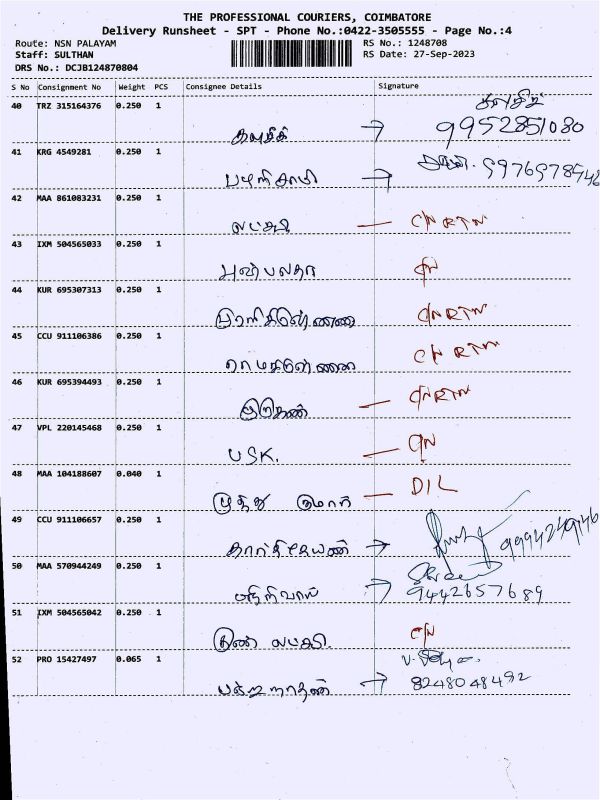 THE PROFESSIONAL COURIERS, COIMBATORE
Delivery Runsheet - SPT - Phone No.:0422-3505555 - Page No.:4
Route: NSN PALAYAM RS No.: 1248708
Staff: SULTHAN RS Date: 27-Sep-2023
DRS No.: DCJB124870804
S No Consignment No Weight PCS Consignee Details Signature
40 TRZ 315164376 0.250 1
→ 9952851080
41 KRG 4549281 0.250 1
பழனிசாமி → 9976978546
42 MAA 861083231 0.250 1
லட்சுமி — C/N RTN
43 IXM 504565033 0.250 1
C/N
44 KUR 695307313 0.250 1
C/N RTN
45 CCU 911106386 0.250 1
C/N RTN
46 KUR 695394493 0.250 1
— C/N RTN
47 VPL 220145468 0.250 1
USK. — C/N
48 MAA 104188607 0.040 1
முத்து குமார் — D/L
49 CCU 911106657 0.250 1
கார்த்திகேயன் → 9994249146
50 MAA 570944249 0.250 1
→ 9442657689
51 IXM 504565042 0.250 1
C/N
52 PRO 15427497 0.065 1
→ 8248048492